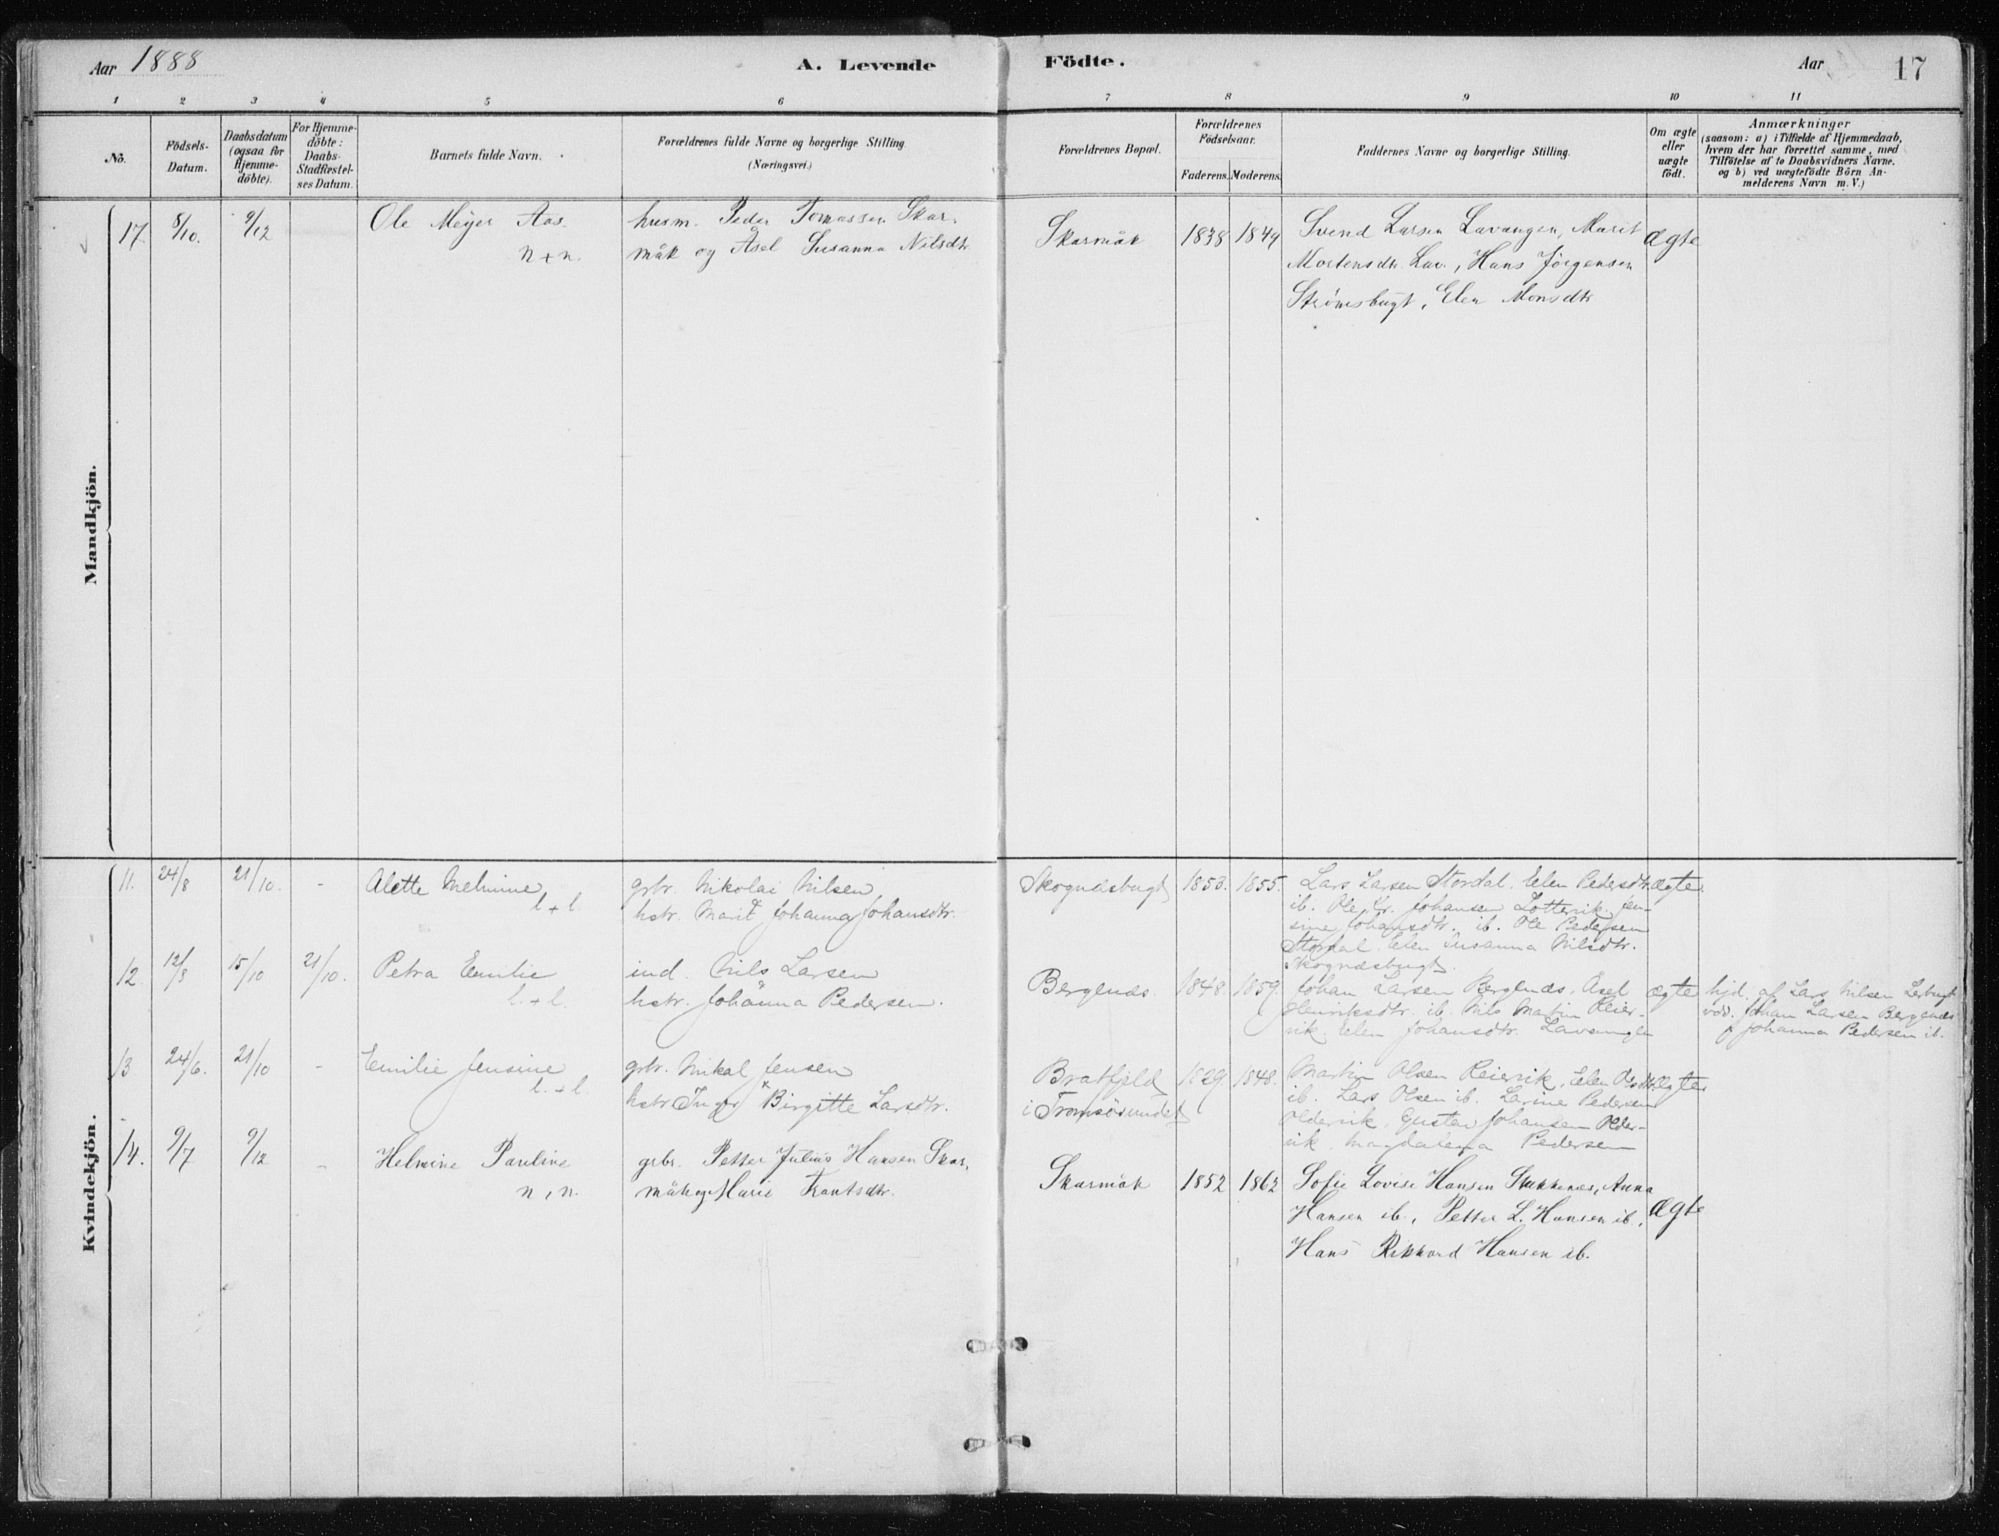 Aar 1888
A. Levende
Födte.
Aar
17
1 2 3 4 5 6 7 8 9 10 11
No.
Födsels-
Datum.
Daabsdatum
(ogsaa for
Hjemme-
döbte).
For Hjemme-
döbte:
Daabs-
Stadfæstel-
ses Datum.
Barnets fulde Navn.
Forældrenes fulde Navne og borgerlige Stilling
(Næringsvei.)
Forældrenes Bopæl.
Forældrenes
Födselsaar.
Faderens. Moderens.
Faddernes Navne og borgerlige Stilling.
Om ægte
eller
uægte
födt.
Anmærkninger
(saasom: a) i Tilfælde af Hjemmedaab,
hvem der har forrettet samme, med
Tilföielse af to Daabsvidners Navne.
og b) ved uægtefödte Börn An-
melderens Navn m. V.)
Mandkjön.
17. 8/10. 9/12 Ole Meyer Aas. husm. Peder Tomassen Skar- Skarmåk 1838 1849 Svend Larsen Lavangen, Marit ægte
n + n. måk og Åsel Susanna Nilsdtr. Mortensdtr. Lav., Hans Jørgensen
Strømsbugt, Elen Monsdtr
Kvindekjön.
11. 24/8 21/10. - Alette Melmine grbr. Nikolai Nilsen Skognæsbugt 1853. 1855. Lars Larsen Stordal. Elen Pedersdtr. ægte
l + l. hstr. Marit Johanna Johansdtr. ib. Ole Kr. Johansen Lotterik. Jen-
sine Johansdtr. ib. Ole Pedersen
Stordal. Elen Susanna Nilsdtr.
Skognæsbugt.
12. 12/8 15/10 21/10. Petra Emilie ind. Nils Larsen Bergenæs. 1848 1859. Johan Larsen Bergenæs. Åsel ægte hjd. af Lars Nilsen Lerbugt
l. + l. hstr. Johanna Pedersen. Henriksdtr. ib. Nils Martin Reier- vdd. Johan Larsen Bergenæs
vik. Elen Johansdtr. Lavangen Johanna Pedersen ib.
13. 24/6. 21/10 - Emilie Jensine grbr. Mikal Jensen Bratfjeld 1829. 1848. Martin Olsen Reiervik, Elen Olsdtr. ægte
l. + l. hstr. Inger Birgitte Larsdtr. i Tromsösundet ib. Lars Olsen ib. Larine Pedersen
Oldervik, Gustav Johansen Older-
vik. Magdalena Pedersen
14. 9/7 9/12 - Helmine Pauline grbr. Petter Julius Hansen Skar- Skarmåk 1852 1862 Sofie Lovise Hansen Stakkenæs, Anna
n + n. måk og Marie Frantsdtr. Hansen ib., Petter L. Hansen ib., ægte
Hans Rikkard Hansen ib.